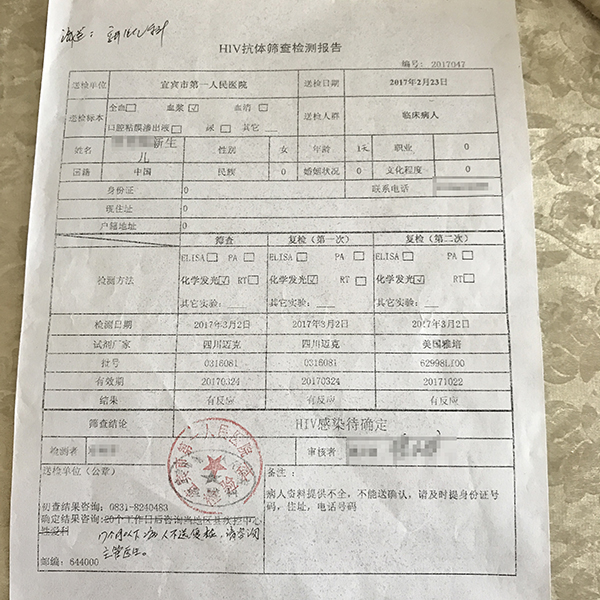 HIV抗体筛查检测报告
编号: 2017047
送检单位 宜宾市第一人民医院 送检日期 2017年2月23日
送检标本 全血□ 血浆☑ 血清□ 送检人群 临床病人
口腔粘膜渗出液□ 尿□ 其它
姓名 新生儿 性别 女 年龄 1天 职业 0
国籍 中国 民族 0 婚姻状况 0 文化程度 0
身份证 0 联系电话
现住址 0
户籍地址 0
筛查 复检(第一次) 复检(第二次)
检测方法 ELISA□ PA□ ELISA□ PA□ ELISA□ PA□
化学发光☑ RT□ 化学发光☑ RT□ 化学发光☑ RT□
其它实验: 其它实验: 其它实验:
检测日期 2017年3月2日 2017年3月2日 2017年3月2日
试剂厂家 四川迈克 四川迈克 美国雅培
批号 0316081 0316081 62998LI00
有效期 20170324 20170324 20171022
结果 有反应 有反应 有反应
筛查结论 HIV感染待确定
检测者 审核者
送检单位(公章) 备注:
病人资料提供不全,不能送确认,请及时提身份证号
码,住址,电话号码
初查结果咨询: 0831-8240483
确定结果咨询: 20个工作日后咨询当地区县疾控中心
性爱科
个月以下病人不送复检,请咨询
主管医生。
邮编: 644000